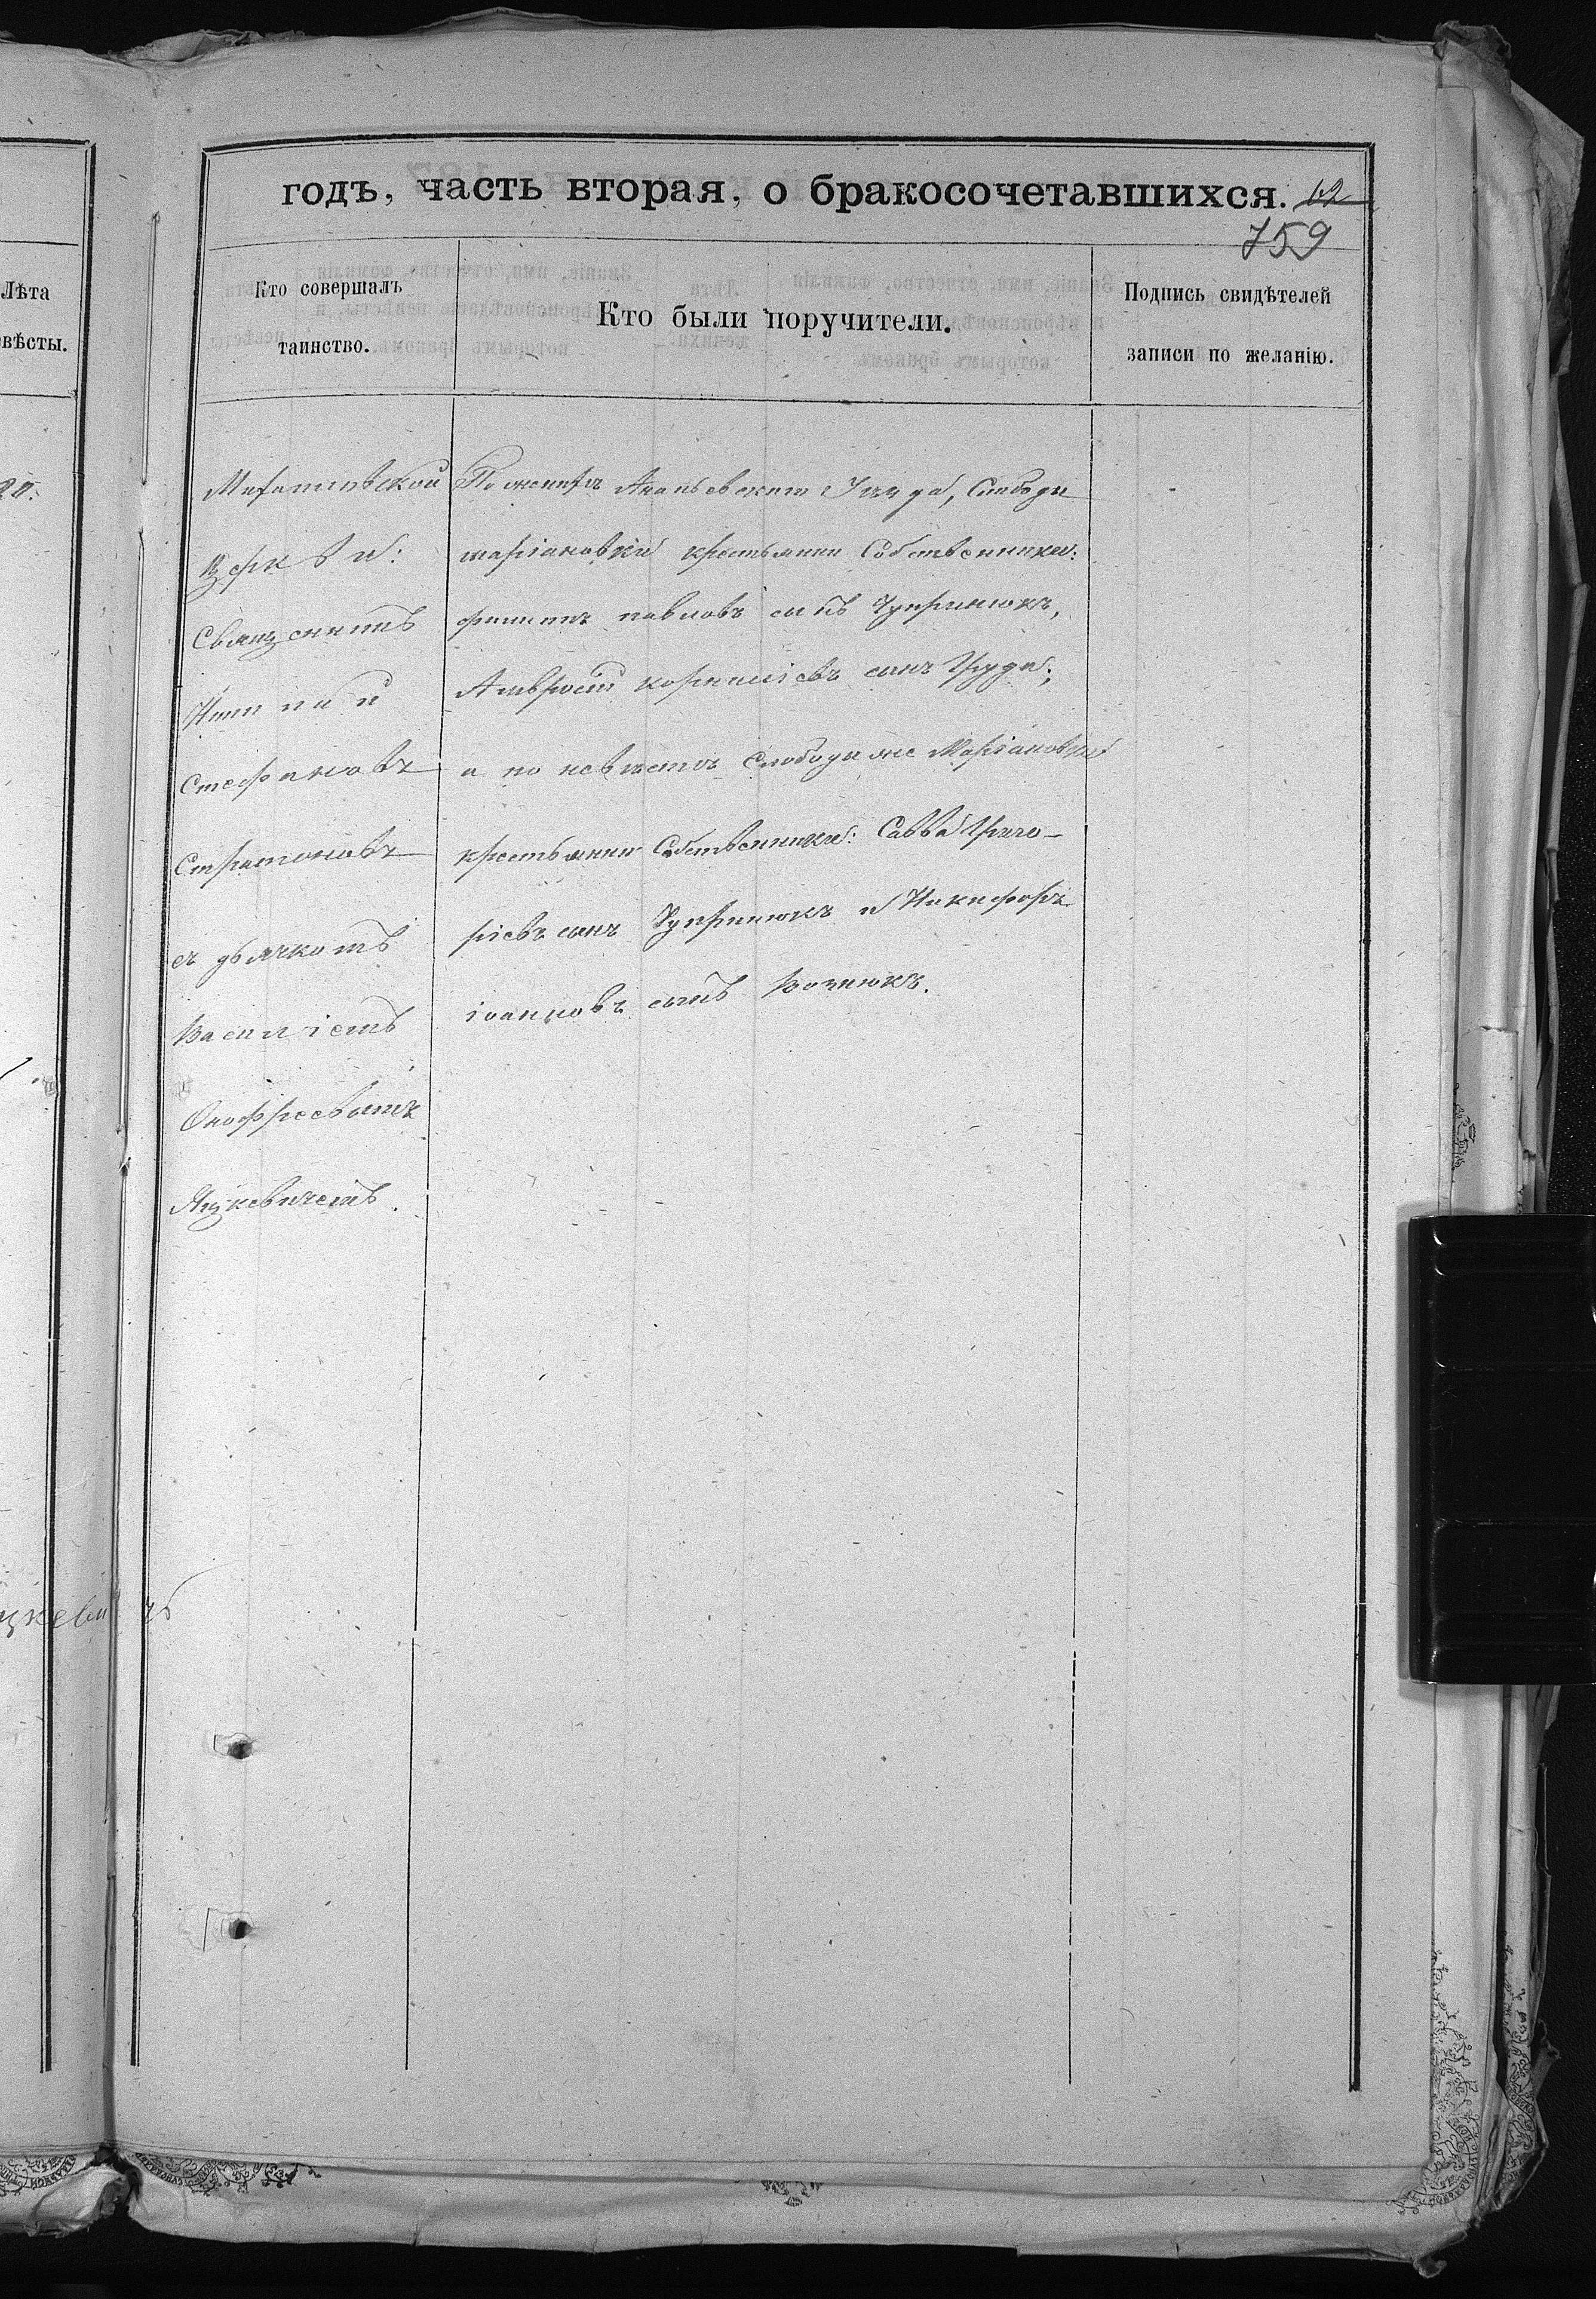 годъ, часть вторая, о бракосочетавшихся. 12
759
Лѣта
вѣсты.
Кто совершалъ
таинство.
Кто были поручители.
Подпись свидѣтелей
записи по желанію.
Церкви:
Священникъ
Стефановъ
съ дьячкомъ
Василіемъ
Онофріевымъ
Яцкевичемъ.
По женихѣ Ананьевскаго Уѣзда, Слободы
маріановки крестьяни Собственники:
филиппъ павловъ сынъ Чупринюкъ,
Амвросій корниліевъ сынъ Груды;
а по невѣстѣ Слободы же Маріановки
крестьяни Собственники: Савва Григо-
ріевъ сынъ Чупринюкъ и Никифоръ
іоанновъ сынъ